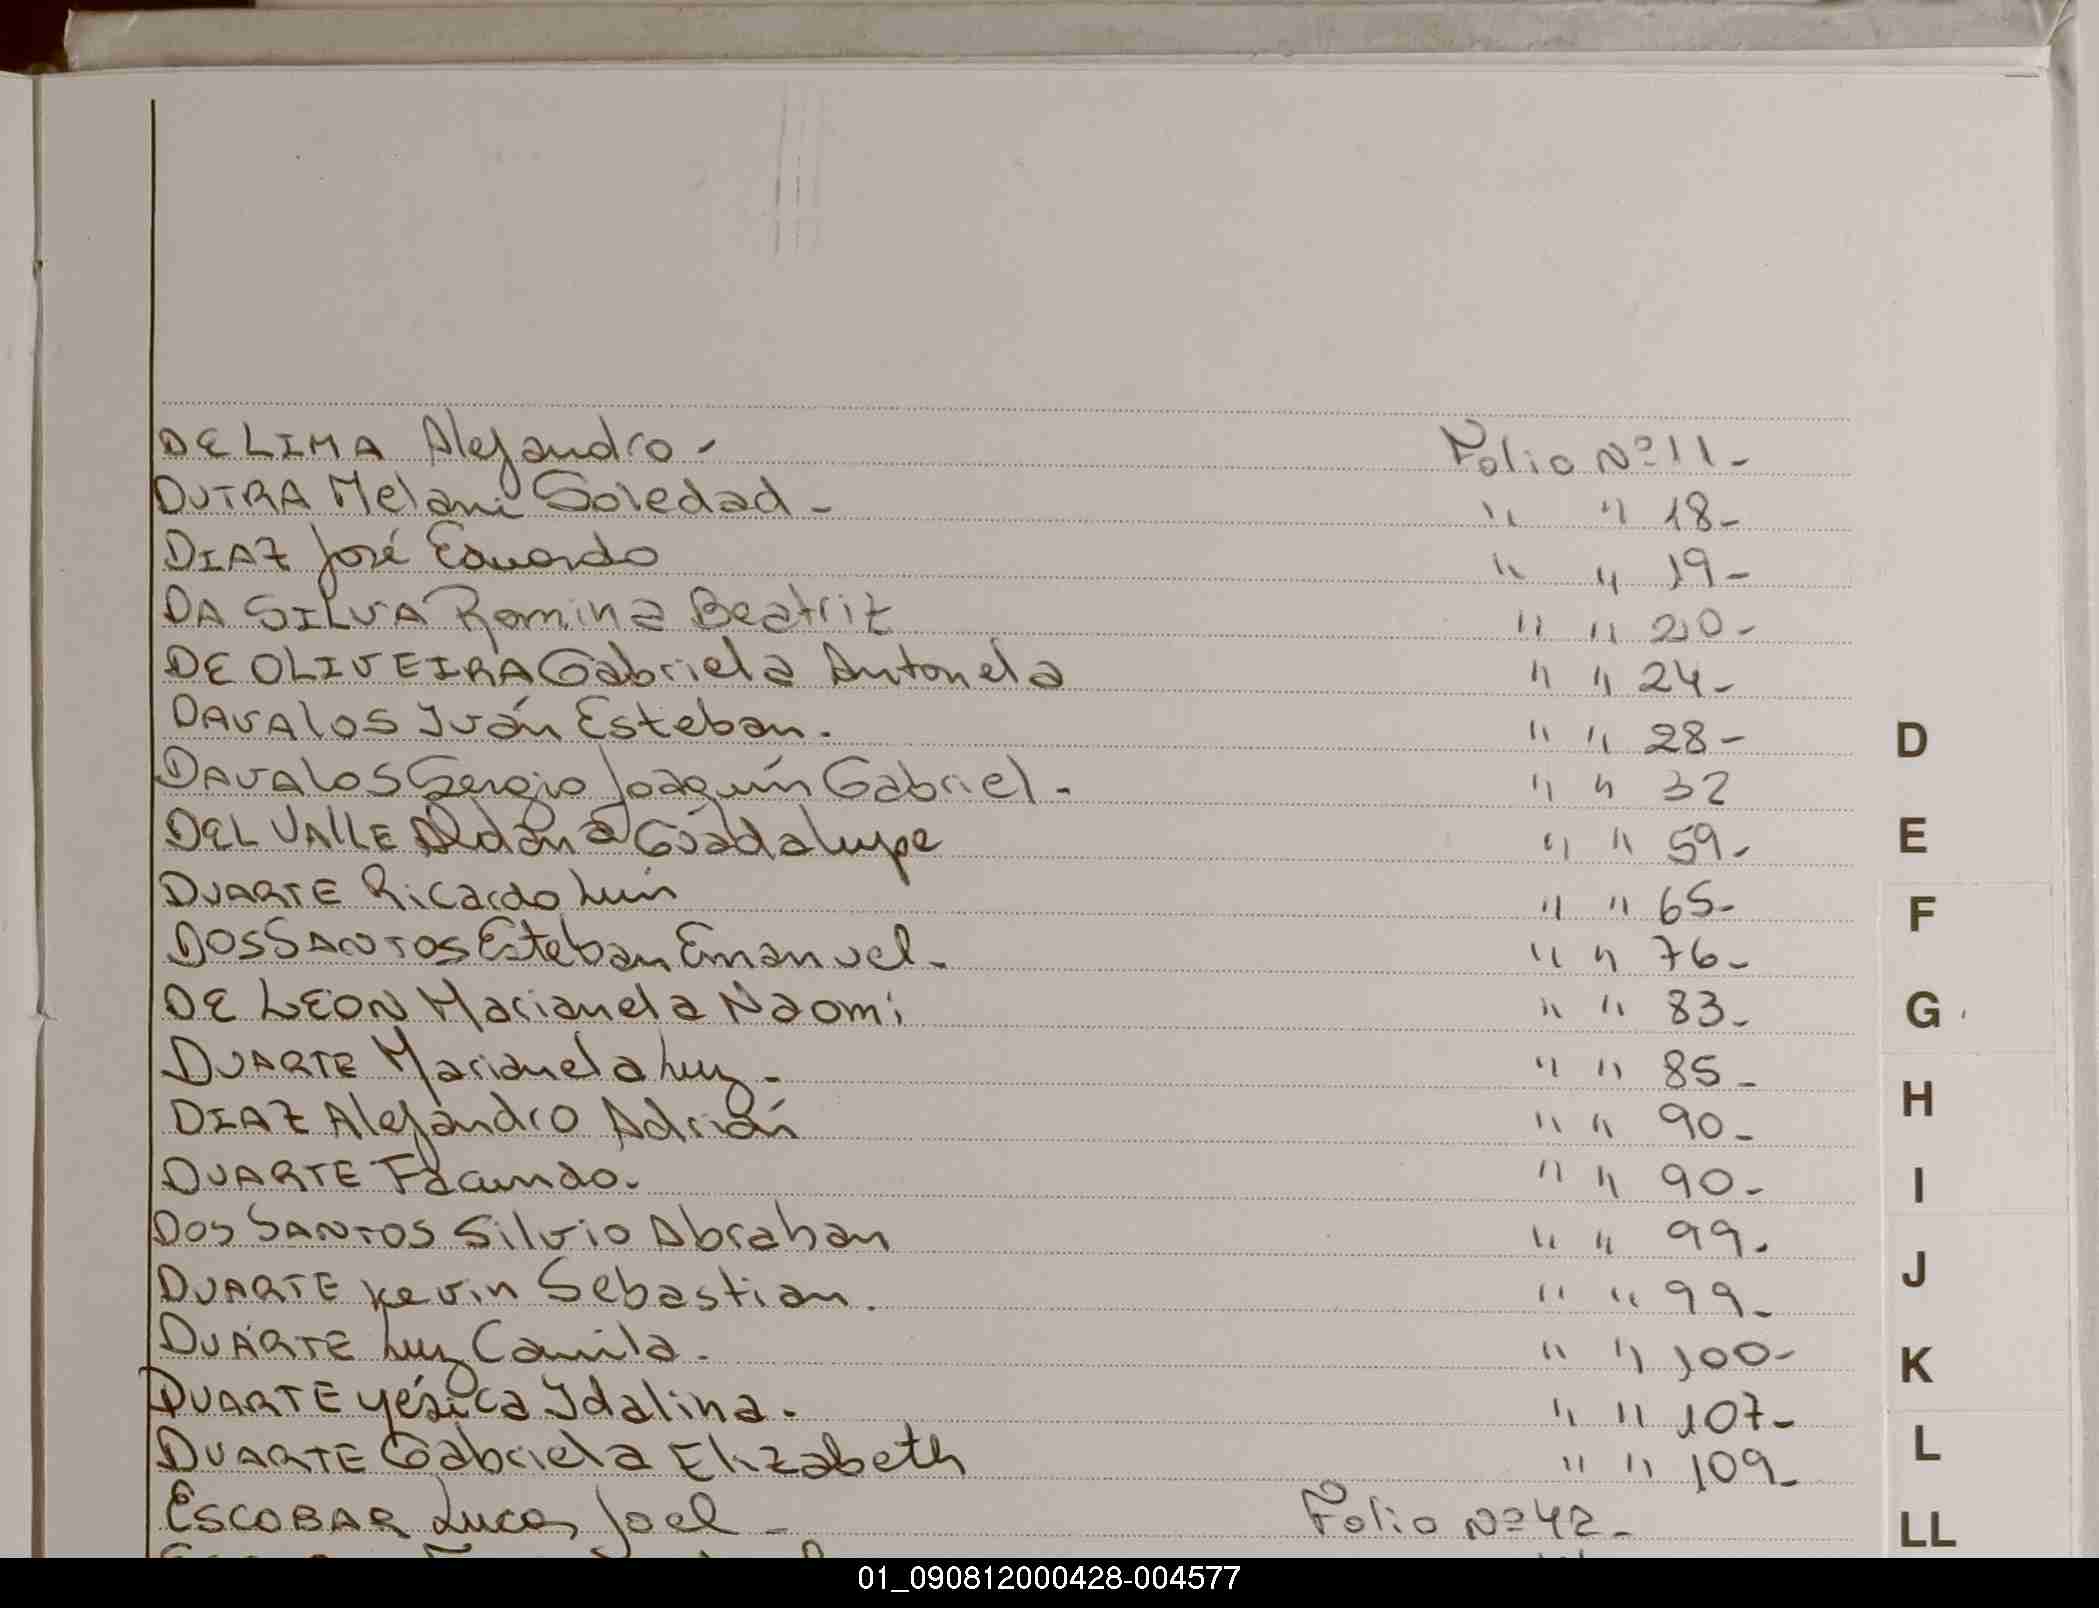 DE LIMA Alejandro - Folio Nº 11 -
DUTRA Melani Soledad - " " 18 -
DIAZ José Eduardo " " 19 -
DA SILVA Romina Beatriz " " 20 -
DE OLIVEIRA Gabriela Antonela " " 24 -
DAVALOS Iván Esteban. " " 28 -
D
DAVALOS Sergio Joaquín Gabriel. " " 32
DEL VALLE Aldana Guadalupe " " 59 -
E
DUARTE Ricardo Luis " " 65 -
F
DOS SANTOS Esteban Emanuel. " " 76 -
DE LEON Marianela Naomi " " 83 -
G
DUARTE Marianela Luz - " " 85 -
H
DIAZ Alejandro Adrián " " 90 -
DUARTE Facundo. " " 90 -
I
DOS SANTOS Silvio Abrahan " " 99.
J
DUARTE Kevin Sebastian. " " 99 -
DUARTE Luz Camila. " " 100 -
K
DUARTE Yésica Idalina. " " 107 -
L
DUARTE Gabriela Elizabeth " " 109 -
ESCOBAR Lucas Joel - Folio Nº 42 -
LL
01_090812000428-004577